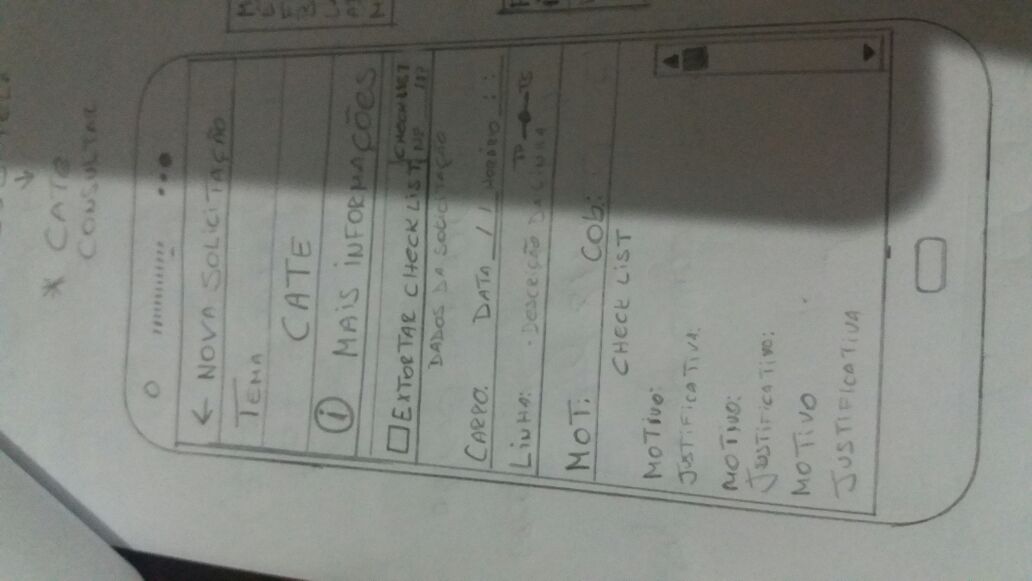 TELA
* CATE
CONSULTAR
← NOVA SOLICITAÇÃO
TEMA
CATE
i MAIS INFORMAÇÕES
EXTORTAR CHECK LIST CHECK LIST Nº
DADOS DA SOLICITAÇÃO
CARRO: DATA / / HORÁRIO : :
LINHA: DESCRIÇÃO DA LINHA TP TS
MOT: COB:
CHECK LIST
MOTIVO:
JUSTIFICATIVA:
MOTIVO:
JUSTIFICATIVO:
MOTIVO
JUSTIFICATIVA